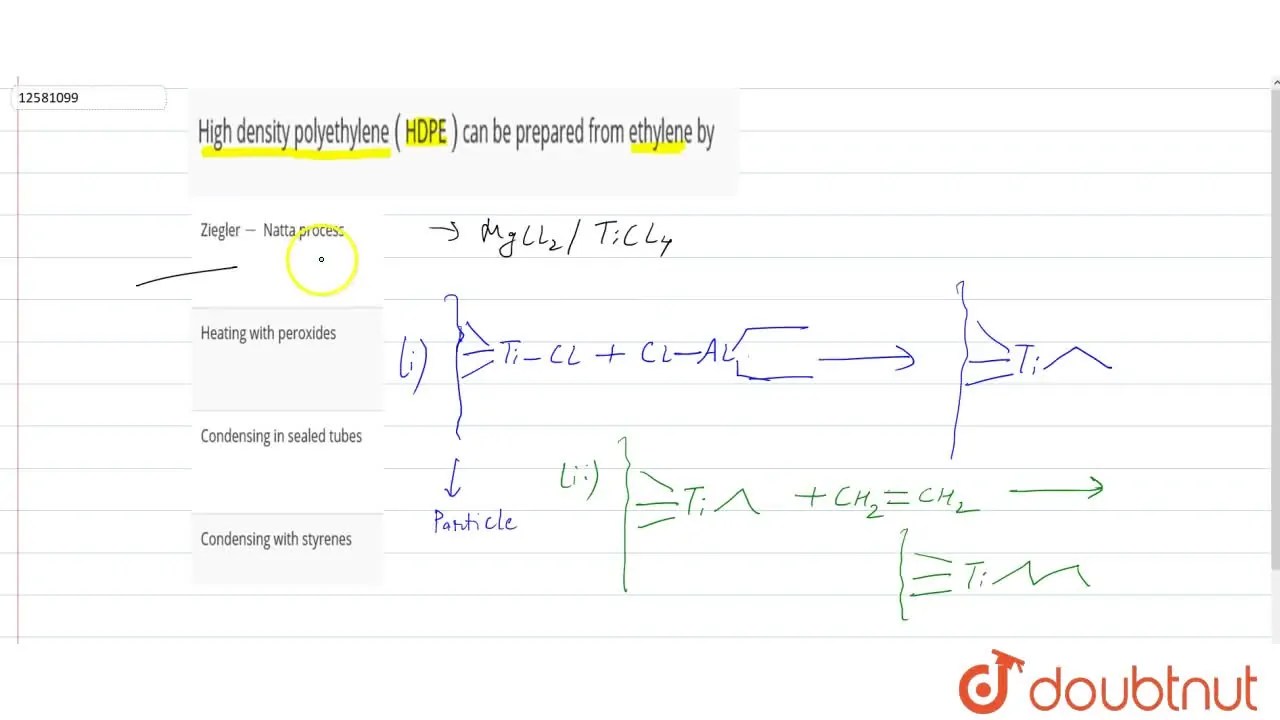 12581099
High density polyethylene ( HDPE ) can be prepared from ethylene by
Ziegler – Natta process
→ MgCl2 / TiCl4
Heating with peroxides
(i) Ti-Cl + Cl-Al → Ti
Condensing in sealed tubes
(ii) Ti + CH2=CH2 →
Particle
Condensing with styrenes
Ti
doubtnut